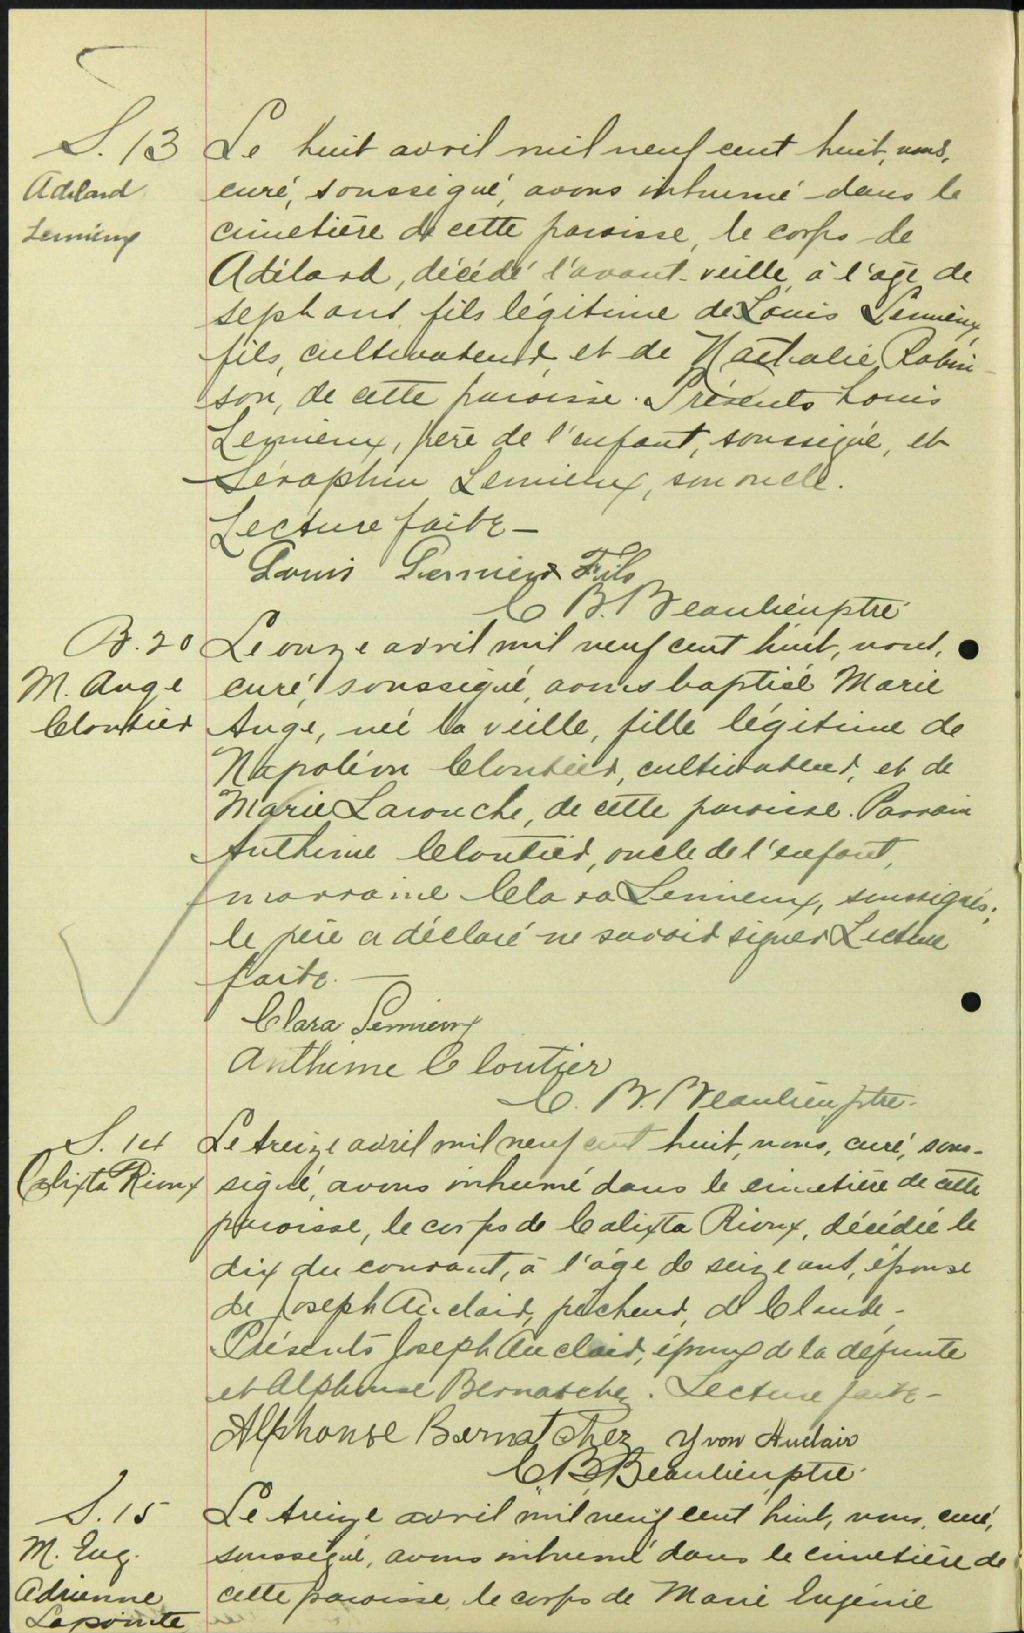 S. 13
Adélard
Lemieux
Le huit avril mil neuf cent huit, nous,
curé, soussigné, avons inhumé dans le
cimetière de cette paroisse, le corps de
Adélard, décédé l'avant-veille, à l'âge de
sept ans, fils légitime de Louis Lemieux,
fils, cultivateur, et de Nathalie Robin-
son, de cette paroisse. Présents Louis
Lemieux, père de l'enfant, soussigné, et
Séraphin Lemieux, son oncle.
Lecture faite —
Louis Lemieux Fils
C. B. Beaulieu ptre
B. 20
M. Ange
Cloutier
Le onze avril mil neuf cent huit, nous,
curé, soussigné, avons baptisé Marie
Ange, née la veille, fille légitime de
Napoléon Cloutier, cultivateur, et de
Marie Larouche, de cette paroisse. Parrain
Anthime Cloutier, oncle de l'enfant,
marraine Clara Lemieux, soussignés;
le père a déclaré ne savoir signer. Lecture
faite. —
Clara Lemieux
Anthime Cloutier
C. B. Beaulieu, ptre.
S. 14
Calixta Rioux
Le treize avril mil neuf cent huit, nous, curé, sous-
signé, avons inhumé dans le cimetière de cette
paroisse, le corps de Calixta Rioux, décédée le
dix du courant, à l'âge de seize ans, épouse
de Joseph Auclair, pêcheur, de Claude.
Présents Joseph Auclair, époux de la défunte
et Alphonse Bernatchez. Lecture faite —
Alphonse Bernatchez Yvon Auclair
C. B. Beaulieu ptre.
S. 15
M. Eug.
Adrienne
Lapointe
Le treize avril mil neuf cent huit, nous, curé,
soussigné, avons inhumé dans le cimetière de
cette paroisse, le corps de Marie Eugénie